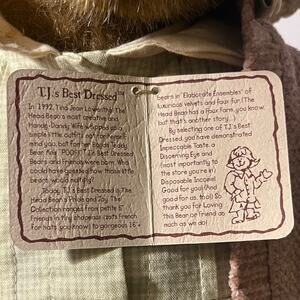 T.J.'s Best Dressed™
In 1992, Tina Jean Lovejoy (The
Head Bean's most creative and
Handy-Dandy Wife) whipped up a
simple little outfit, not for herself
mind you, but for her Bears Teddy
Bear And "POOF!" T.J.'s Best Dressed
Bears and Friends were born. Who
could have guessed how those little
bears would multiply?
Today, T.J.'s Best Dressed is The
Head Bean's Pride and Joy. The
Collection ranges from petite 6"
Friends in tiny shapeous (that's French
for hats you know) to gorgeous 16"
bears in "Elaborate Ensembles" of
luxurious velvets and faux fur. (The
Head Bean has a faux farm, you know,
but that's another story...)
By selecting one of T.J.'s Best
Dressed, you have demonstrated
Impeccable Taste, a
Discerning Eye and
(most importantly to
the store you're in)
Disposable Income!
Good for you! (And
good for us, too!) So
thank you for Loving
This Bean or Friend as
much as we do!